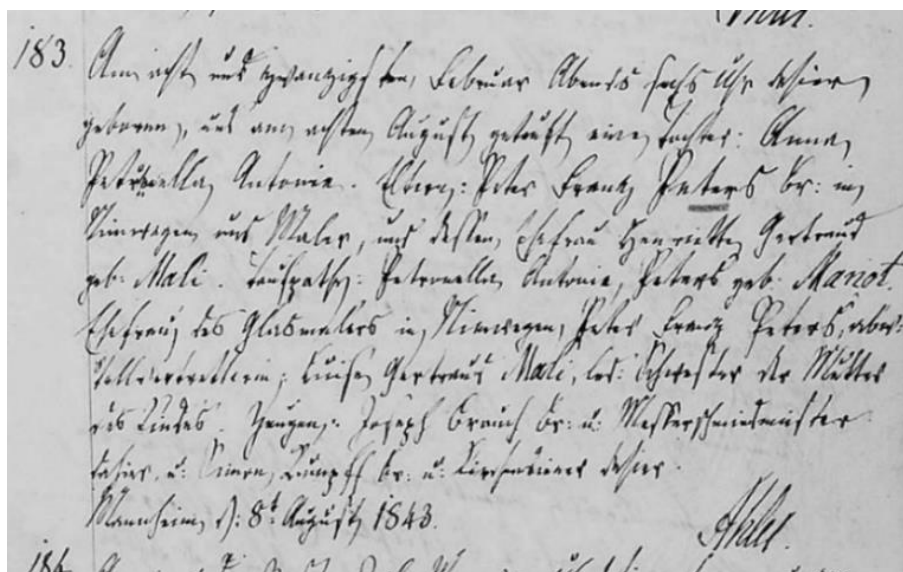 183.
Am acht und zwanzigsten Februar Abends sechs Uhr dahier
geboren, und am achten August getauft eine Tochter: Anna
Petronella Antonie. Eltern: Peter Frantz Peters Br: in
Nimwegen und Maler, und dessen Ehefrau Henriette Gertraud
geb: Mali. Taufpathe: Petronella Antonie Peters geb: Mariot.
Ehefrau des Glasmalers in Nimwegen, Peter Frantz Peters, aber
Stellvertretterin: Luise Gertraud Mali, led: Schwester der Mutter
des Kindes. Zeugen: Joseph Brauch Br: u: Messerschmiedmeister
dahier, u: Br: u: Kirchendiener dahier.
Mannheim, d: 8t August 1843.